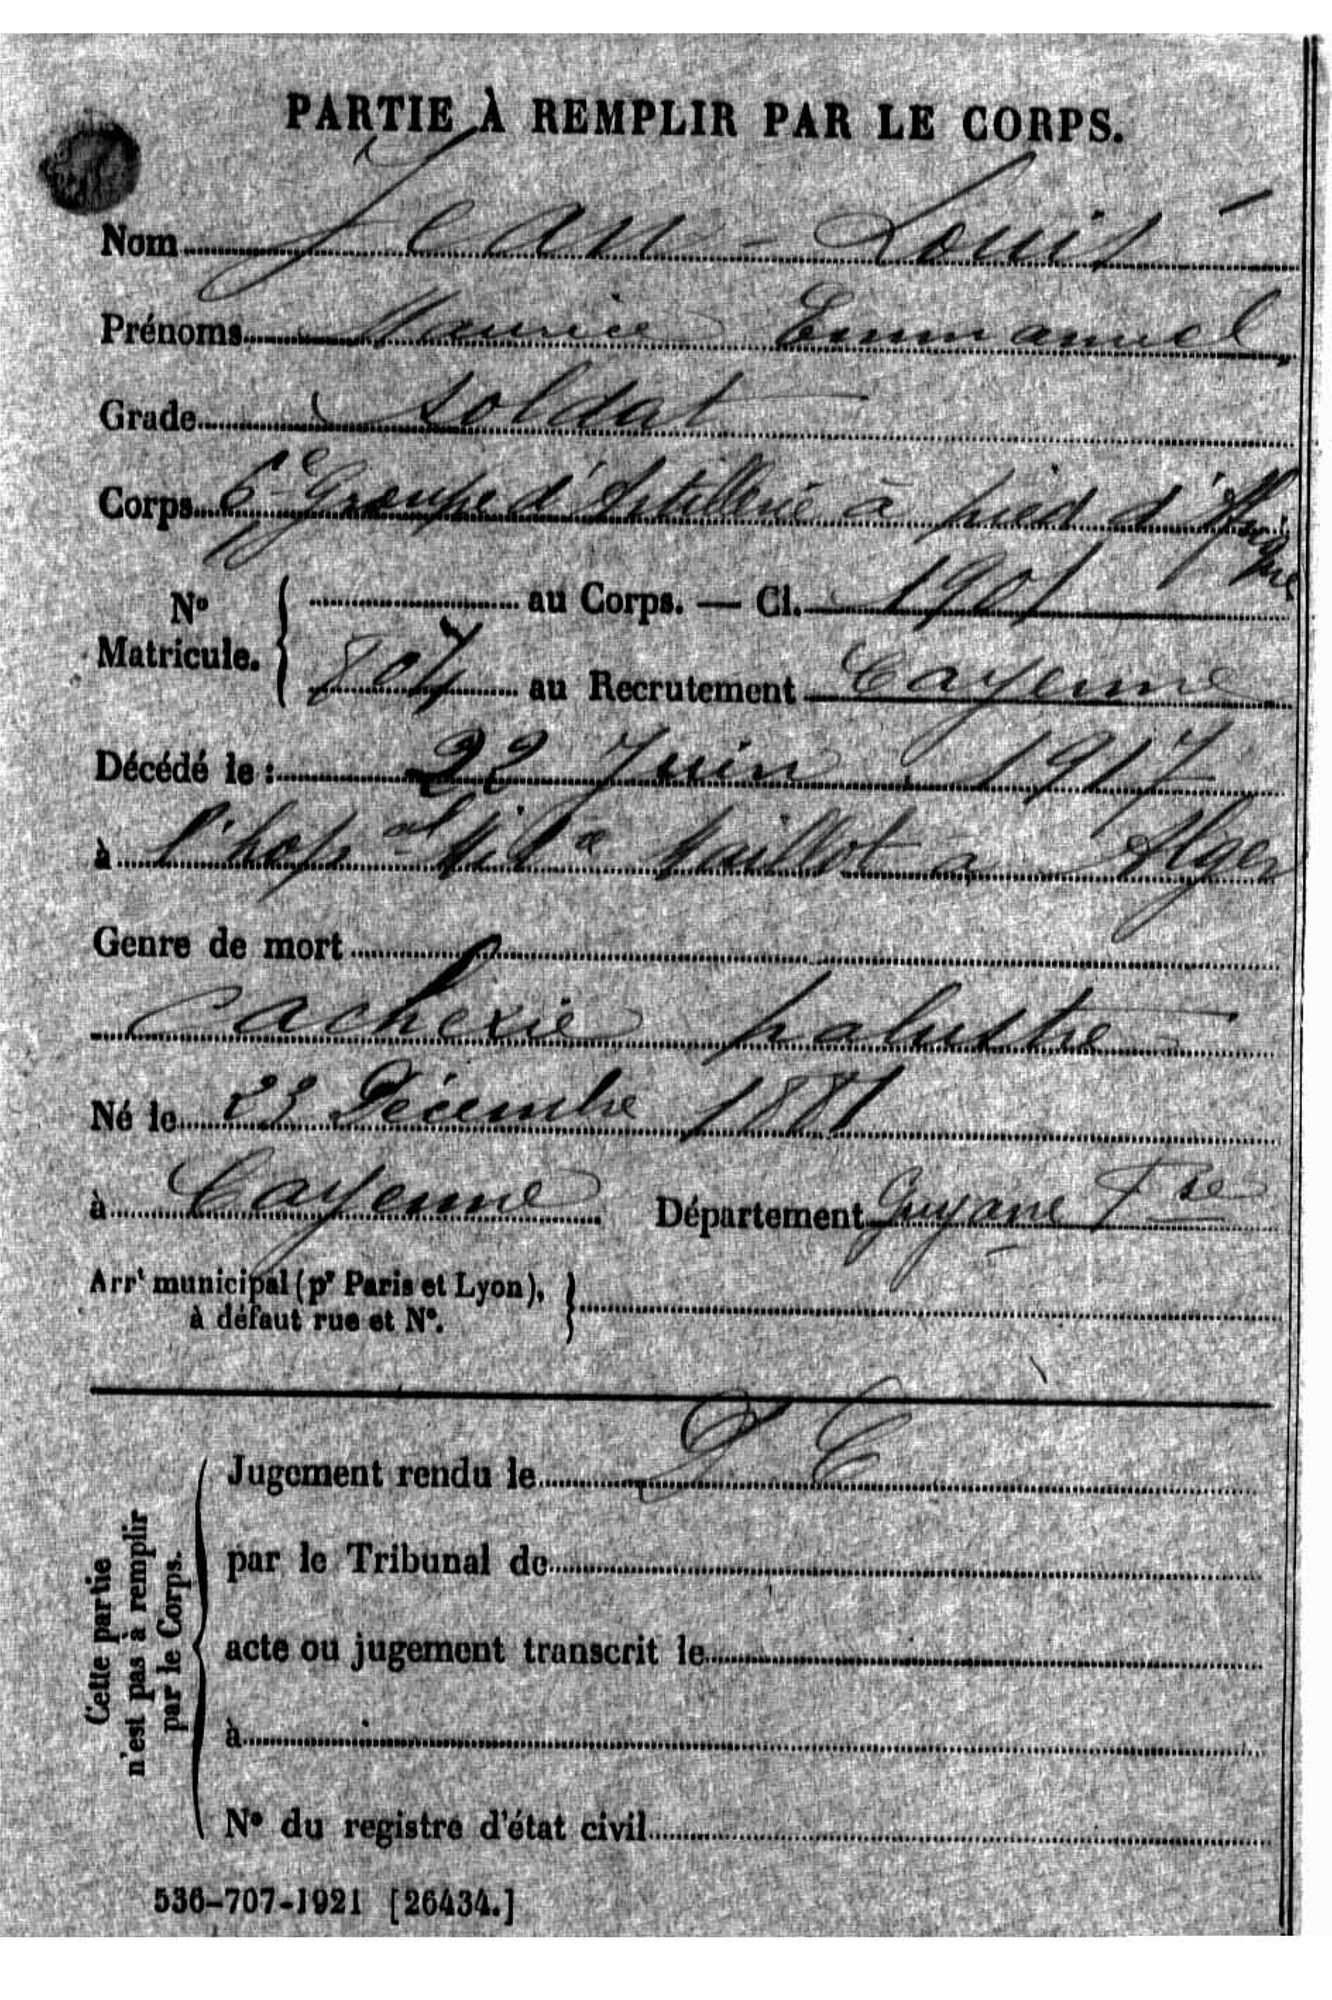 PARTIE À REMPLIR PAR LE CORPS.
Nom Jean-Louis
Prénoms Maurice Emmanuel
Grade soldat
Corps 6e Groupe d'Artillerie à pied d'Afrique
No Matricule. au Corps. — Cl. 1901
804 au Recrutement Cayenne
Décédé le : 22 Juin 1917
à l'hopal Mlre Maillot à Alger
Genre de mort
cachexie palustre
Né le 23 Décembre 1881
à Cayenne Département Guyane Fse
Arrt municipal (pr Paris et Lyon),
à défaut rue et No.
Cette partie
n'est pas à remplir
par le Corps.
Jugement rendu le
par le Tribunal de
acte ou jugement transcrit le
à
No du registre d'état civil
536-707-1921 [26434.]